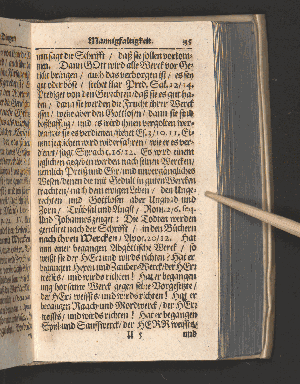 Mannigfaltigkeit. 35
nun sagt die Schrifft / daß sie sollen vorkom-
men. Dann GOtt wird alle Werck vor Ge-
richt bringen / auch das verborgen ist / es sey
gut oder böß / siehet klar Pred. Sal. 12/14.
Prediget von den Gerechten / daß sie es gut ha-
ben / dann sie werden die Frucht ihrer Werck
essen / wehe aber den Gottlosen / dann sie sind
boßhafftig / und es wird ihnen vergolten wer-
den wie sie es verdienen / Esa. 3/10. 11. Ei-
nem jeglichen wird widerfahren / wie er es ver-
dienet / sagt Syrach c. 16/12. Er wird einem
jeglichen geben werden nach seinen Wercken /
nemlich Preiß und Ehr / und unvergängliches
Wesen / denen die mit Gedult in guten Wercken
trachten / nach dem ewigen Leben / den Unge-
rechten und Gottlosen aber Ungnad und
Zorn / Trübsal und Angst / Rom. 2/6. seq.
Und Johannes zeuget: Die Todten werden
gerichtet nach der Schrifft / in den Büchern
nach ihren Wercken / Apoc. 20/12. Hat
nun einer begangen Abgöttische Werck / so
weißt sie der HErr und wirds richten / Hat er
begangen Hexen- und Zauber-Werck / der HErr
weißts / und wirds richten! Hat er begangen
ungehorsame Werck gegen seine Vorgesetzte /
der HErr weißts und wirds richten! Hat er
begangen Raach- und Mordwerck / der HErr
weißts / und wirds richten! Hat er begangen
Spiel- und Sauffwerck / der HERR weißts /
und